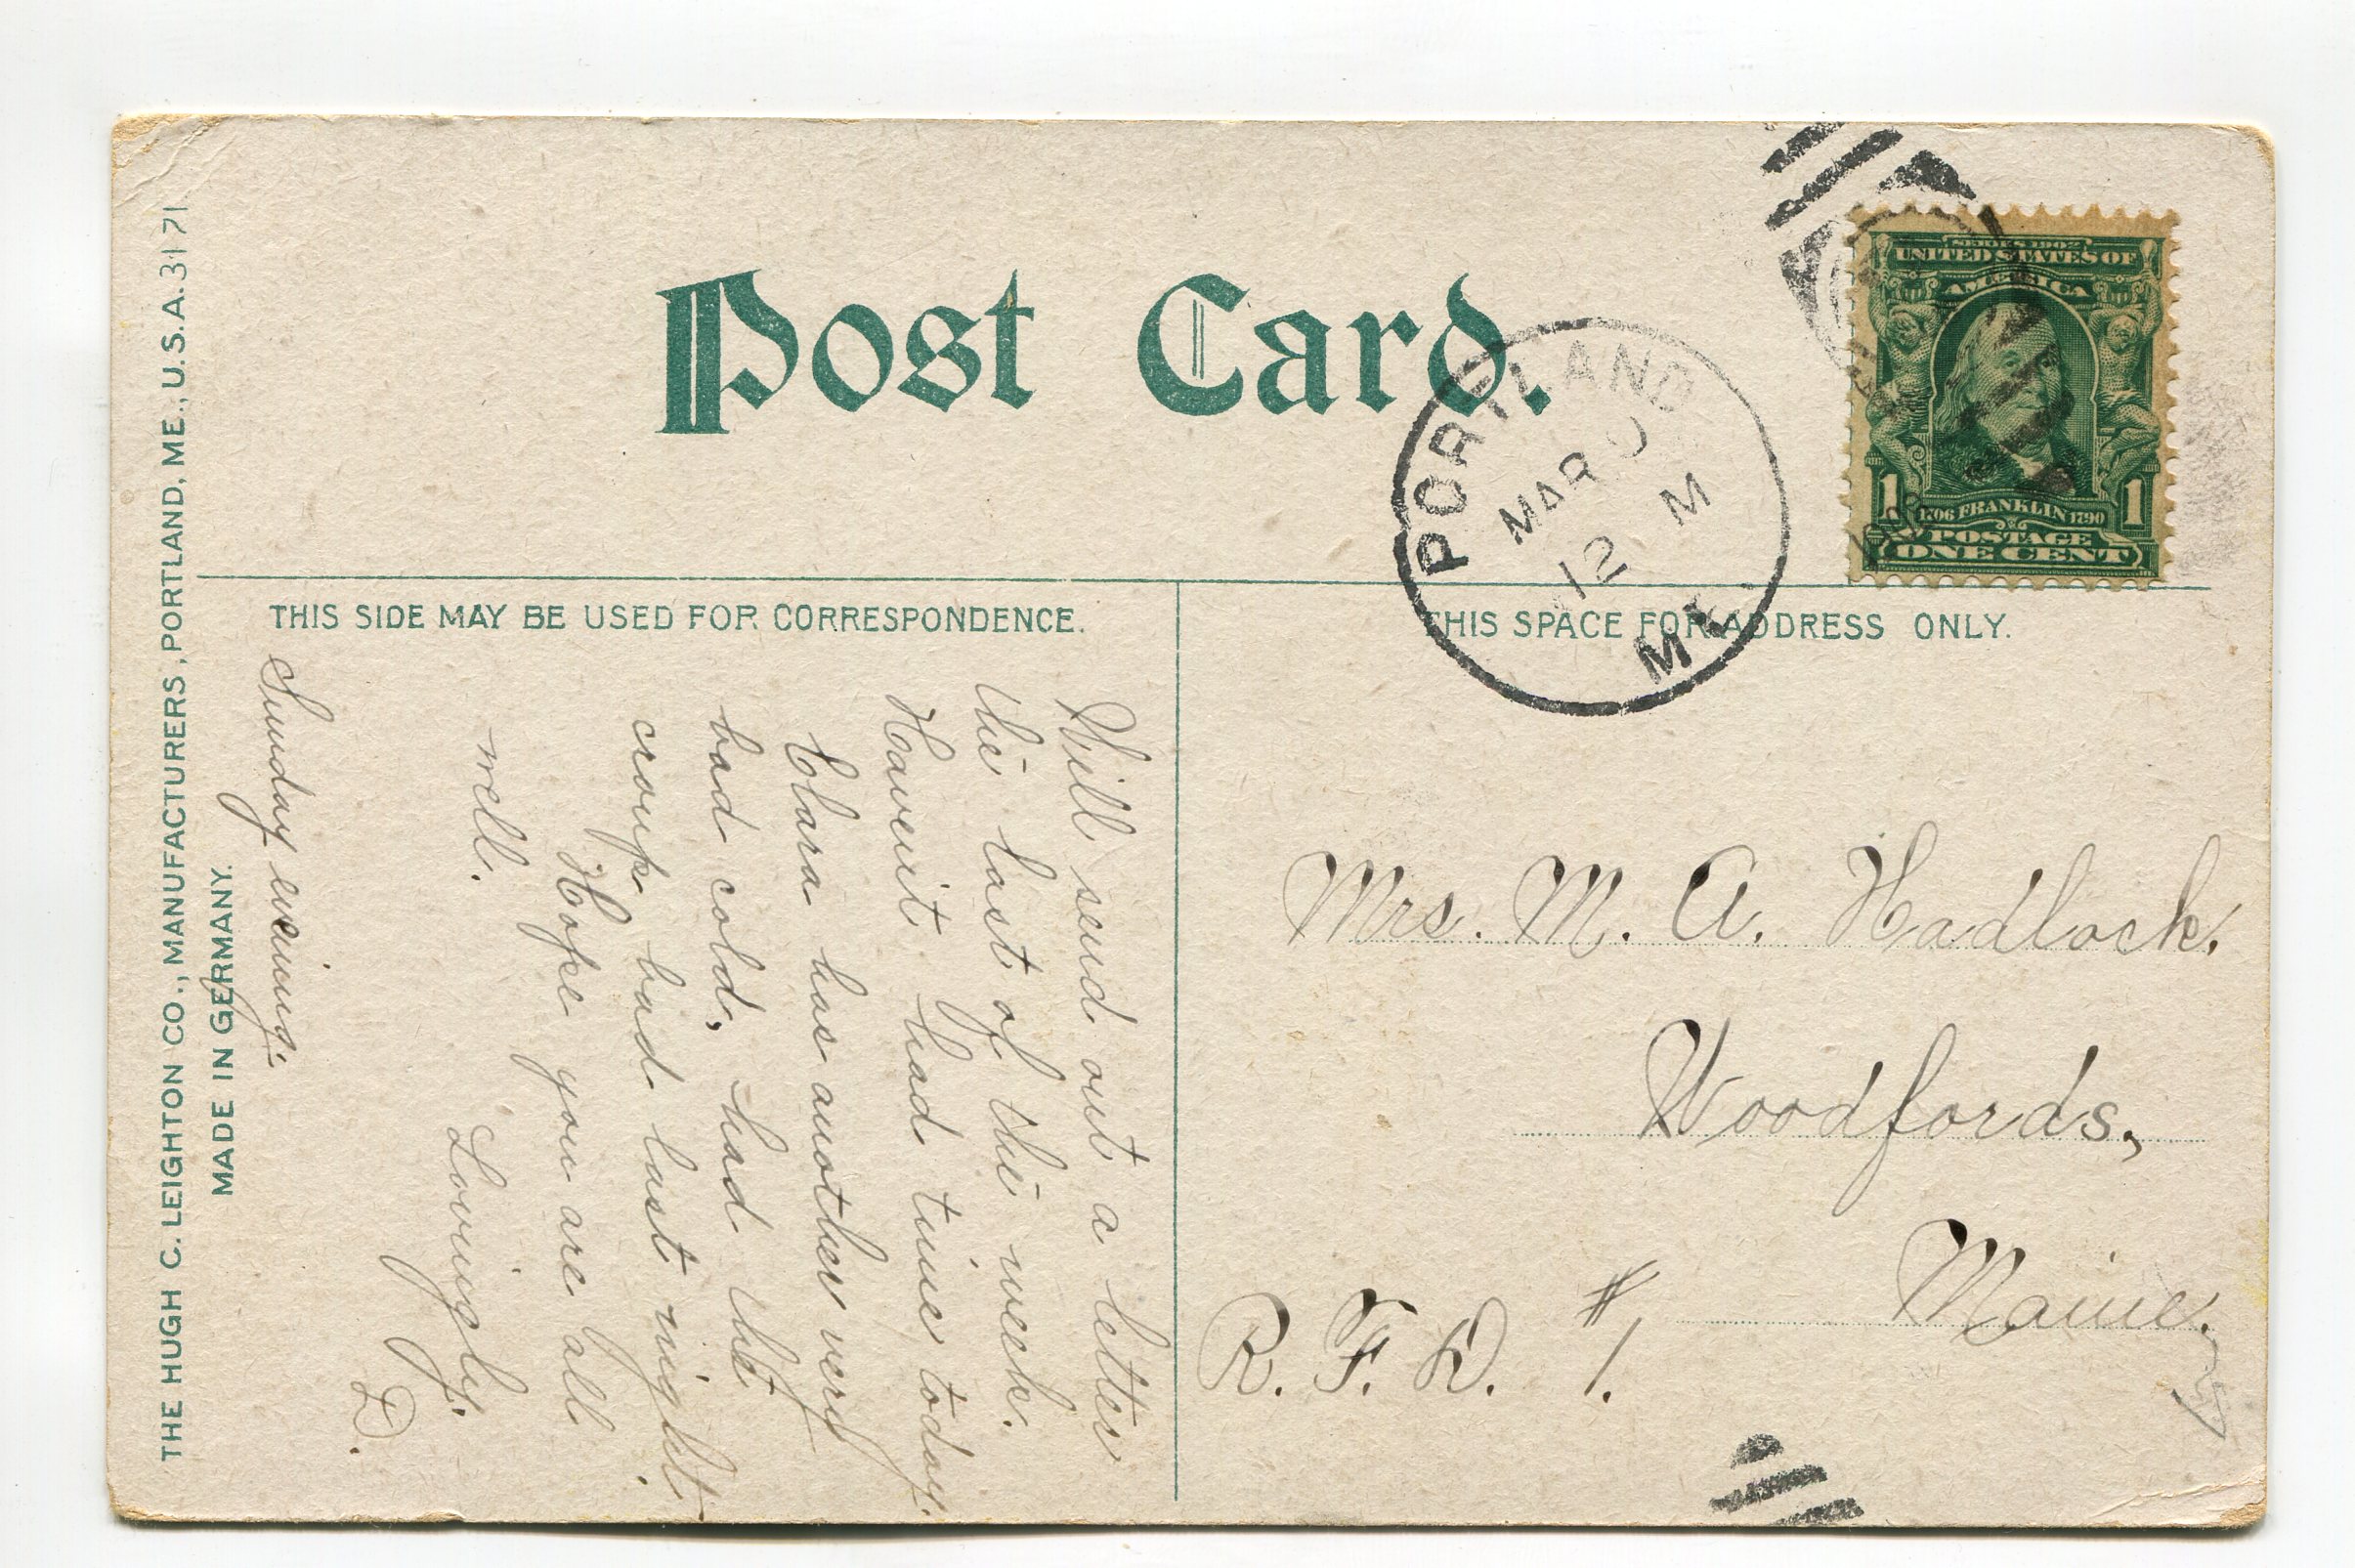 Post Card.
THE HUGH C. LEIGHTON CO., MANUFACTURERS, PORTLAND, ME., U.S.A. 3171
MADE IN GERMANY.
THIS SIDE MAY BE USED FOR CORRESPONDENCE.
THIS SPACE FOR ADDRESS ONLY.
PORTLAND
MAR
12 M
ME.
SERIES 1902
UNITED STATES OF
AMERICA
1706 FRANKLIN 1790
1 1
POSTAGE
ONE CENT
Will send out a letter
the last of the week.
Havent had time today.
Clara has another very
bad cold, had the
croup bad last night.
Hope you are all
well.
Lovingly.
D.
Sunday evening.
Mrs. M. A. Hadlock.
Woodfords,
Maine.
R. F. D. #1.